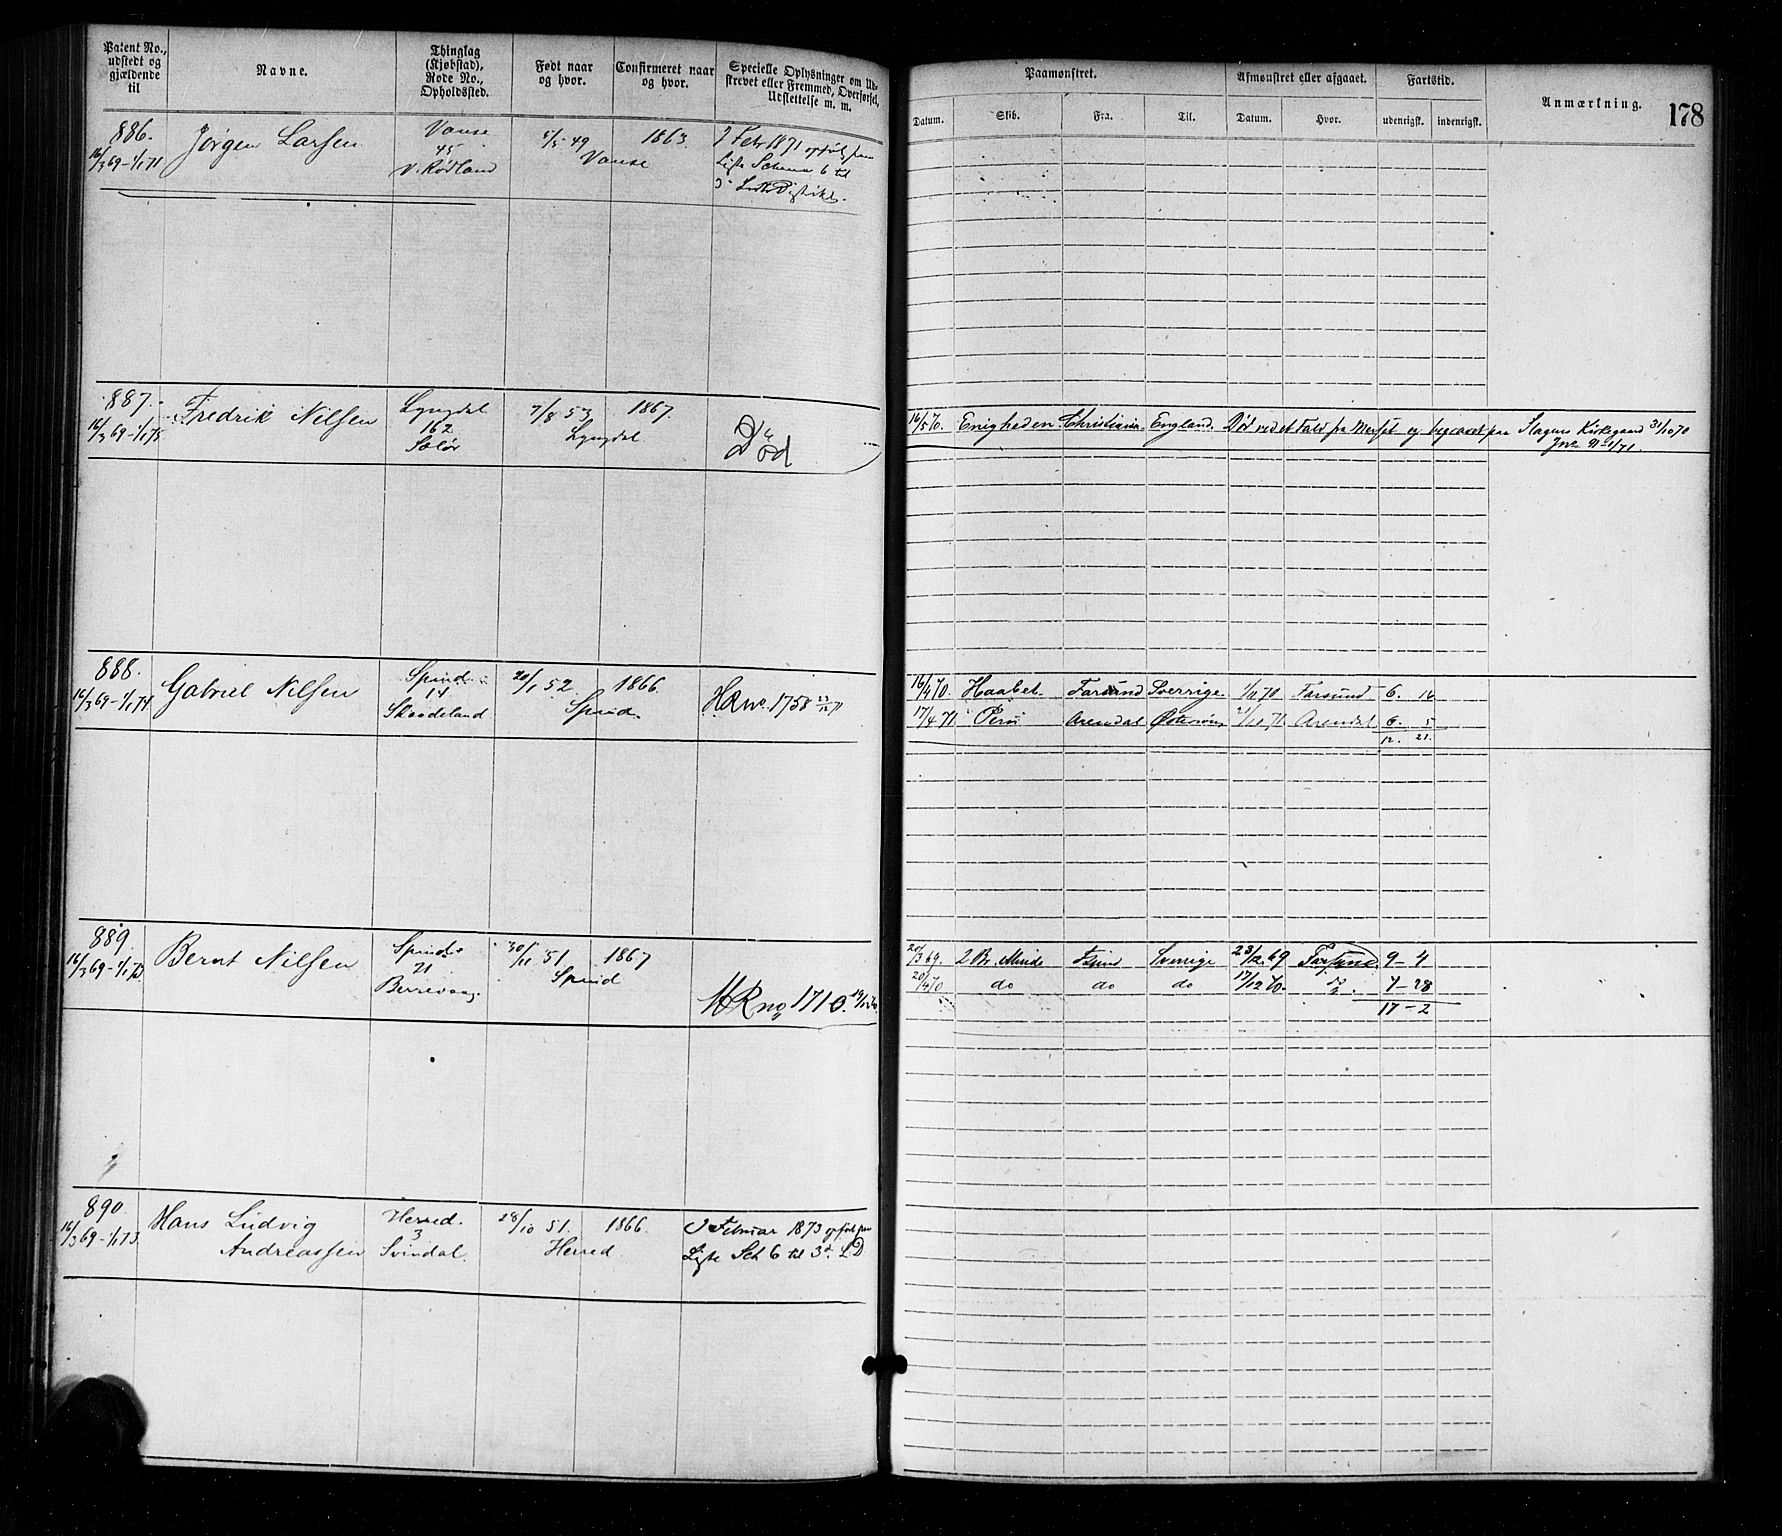 Patent No., udstedt og gjældende til
Navne.
Thinglag (Kjøbstad), Rode No., Opholdssted.
Født naar og hvor.
Confirmeret naar og hvor.
Specielle Oplysninger om Udskrevet eller Fremmed, Overførsel, Udslettelse m. m.
Paamønstret.
Afmønstret eller afgaaet.
Fartstid.
Anmærkning.
178
Datum. Skib. Fra. Til. Datum. Hvor. udenrigsk. indenrigsk.
886.
16/3 69 - 1/1 71
Jörgen Larsen
Vanse
45
V. Rödland
5/5 - 49
1863.
Vanse
Febr 1871 opført paa
Liste Schema 6 til
3' Lods Distrikt.
887.
16/3 69 - 1/1 75
Fredrik Nilsen
Lyngdal
162
Sölör
7/8 53
1867.
Lyngdal
Död
16/5 70. Enigheden Christiania England. Död ved et Fald fra og begravet paa Slagens Kirkegaard 31/10 70
888.
16/3 69 - 1/1 74
Gabriel Nilsen
Spind
14
Skaadeland
20/1 52.
1866.
Spind
HR no. 1758
16/4 70. Haabet Farsund Sverrige 1/11 70 Farsund 6. 16
17/4 71. Arendal Arendal 6. 5
12. 21.
889.
16/3 69 - 1/1 73
Bernt Nilsen
Spind
21
Berrevaag.
30/11 51
1867
Spind
HR no 1710.
20/3 69. 2 Br. Minde Fsund Sverrige 23/12 69 Farsund 9 - 4
20/4 70 do do do 17/12 70. 7 - 28
17 - 2
890.
16/3 69 - 1/1 73
Hans Ludvig
Andreassen
Herred.
3
Svindal.
28/10 51.
1866.
Herred
Februar 1873 opført paa
Liste Sch 6 til 3' LD